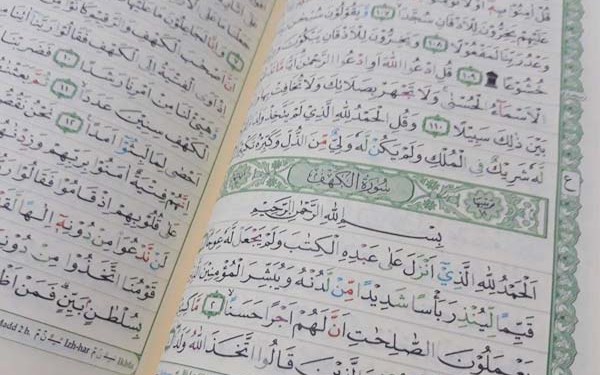 عَلَيْهِمْ يَخِرُّوْنَ لِلْاَذْقَانِ سُجَّدًا ١٠٧ وَّيَقُوْلُوْنَ
وَعْدُ رَبِّنَا لَمَفْعُوْلًا ١٠٨ وَيَخِرُّوْنَ لِلْاَذْقَانِ يَبْكُوْنَ
خُشُوْعًا ١٠٩ قُلِ ادْعُوا اللّٰهَ اَوِ ادْعُوا الرَّحْمٰنَ
الْاَسْمَاۤءُ الْحُسْنٰى وَلَا تَجْهَرْ بِصَلَاتِكَ وَلَا تُخَافِتْ بِهَا
بَيْنَ ذٰلِكَ سَبِيْلًا ١١٠ وَقُلِ الْحَمْدُ لِلّٰهِ الَّذِيْ لَمْ يَتَّخِذْ
لَّهٗ شَرِيْكٌ فِى الْمُلْكِ وَلَمْ يَكُنْ لَّهٗ وَلِيٌّ مِّنَ الذُّلِّ وَكَبِّرْهُ
سُوْرَةُ الْكَهْفِ
بِسْمِ اللّٰهِ الرَّحْمٰنِ الرَّحِيْمِ
اَلْحَمْدُ لِلّٰهِ الَّذِيْٓ اَنْزَلَ عَلٰى عَبْدِهِ الْكِتٰبَ وَلَمْ يَجْعَلْ لَّهٗ عِوَجًا
قَيِّمًا لِّيُنْذِرَ بَأْسًا شَدِيْدًا مِّنْ لَّدُنْهُ وَيُبَشِّرَ الْمُؤْمِنِيْنَ
يَعْمَلُوْنَ الصّٰلِحٰتِ اَنَّ لَهُمْ اَجْرًا حَسَنًا
الَّذِيْنَ قَالُوا اتَّخَذَ اللّٰهُ
اَنَّ اَصْحٰبَ الْكَهْفِ وَالرَّقِيْمِ
اِذْ اَوَى الْفِتْيَةُ اِلَى الْكَهْفِ فَقَالُوْا رَبَّنَآ اٰتِنَا
وَّهَيِّئْ لَنَا مِنْ اَمْرِنَا رَشَدًا ١٠ فَضَرَبْنَا
الْكَهْفِ سِنِيْنَ عَدَدًا ١١ ثُمَّ بَعَثْنٰهُمْ
اَحْصٰى لِمَا لَبِثُوْٓا اَمَدًا ١٢ نَحْنُ نَقُصُّ
اِنَّهُمْ فِتْيَةٌ اٰمَنُوْا بِرَبِّهِمْ وَزِدْنٰهُمْ
عَلٰى قُلُوْبِهِمْ اِذْ قَامُوْا فَقَالُوْا
لَنْ نَّدْعُوَا۟ مِنْ دُوْنِهٖٓ اِلٰهًا
قَوْمُنَا اتَّخَذُوْا مِنْ دُوْنِهٖٓ
بِسُلْطٰنٍ بَيِّنٍ فَمَنْ
Madd 2 h. Izh-har